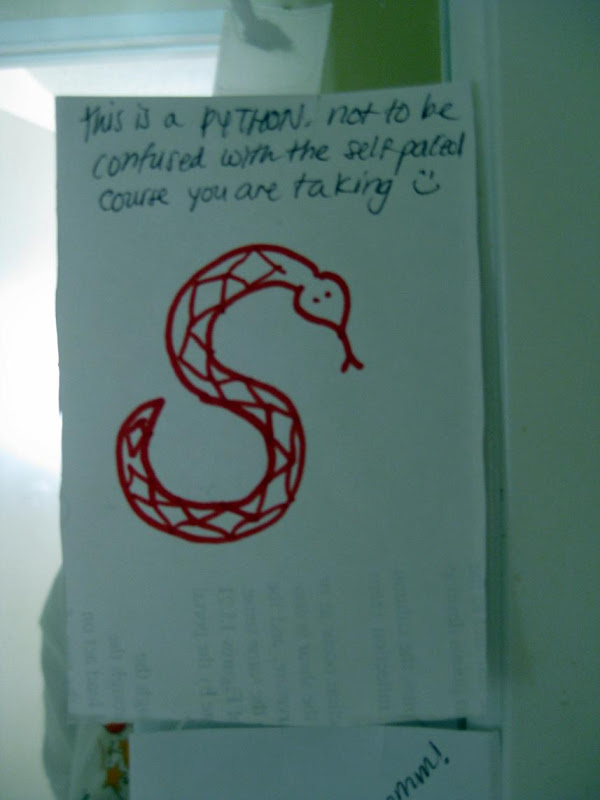 this is a PYTHON. not to be
confused with the self paced
course you are taking :)